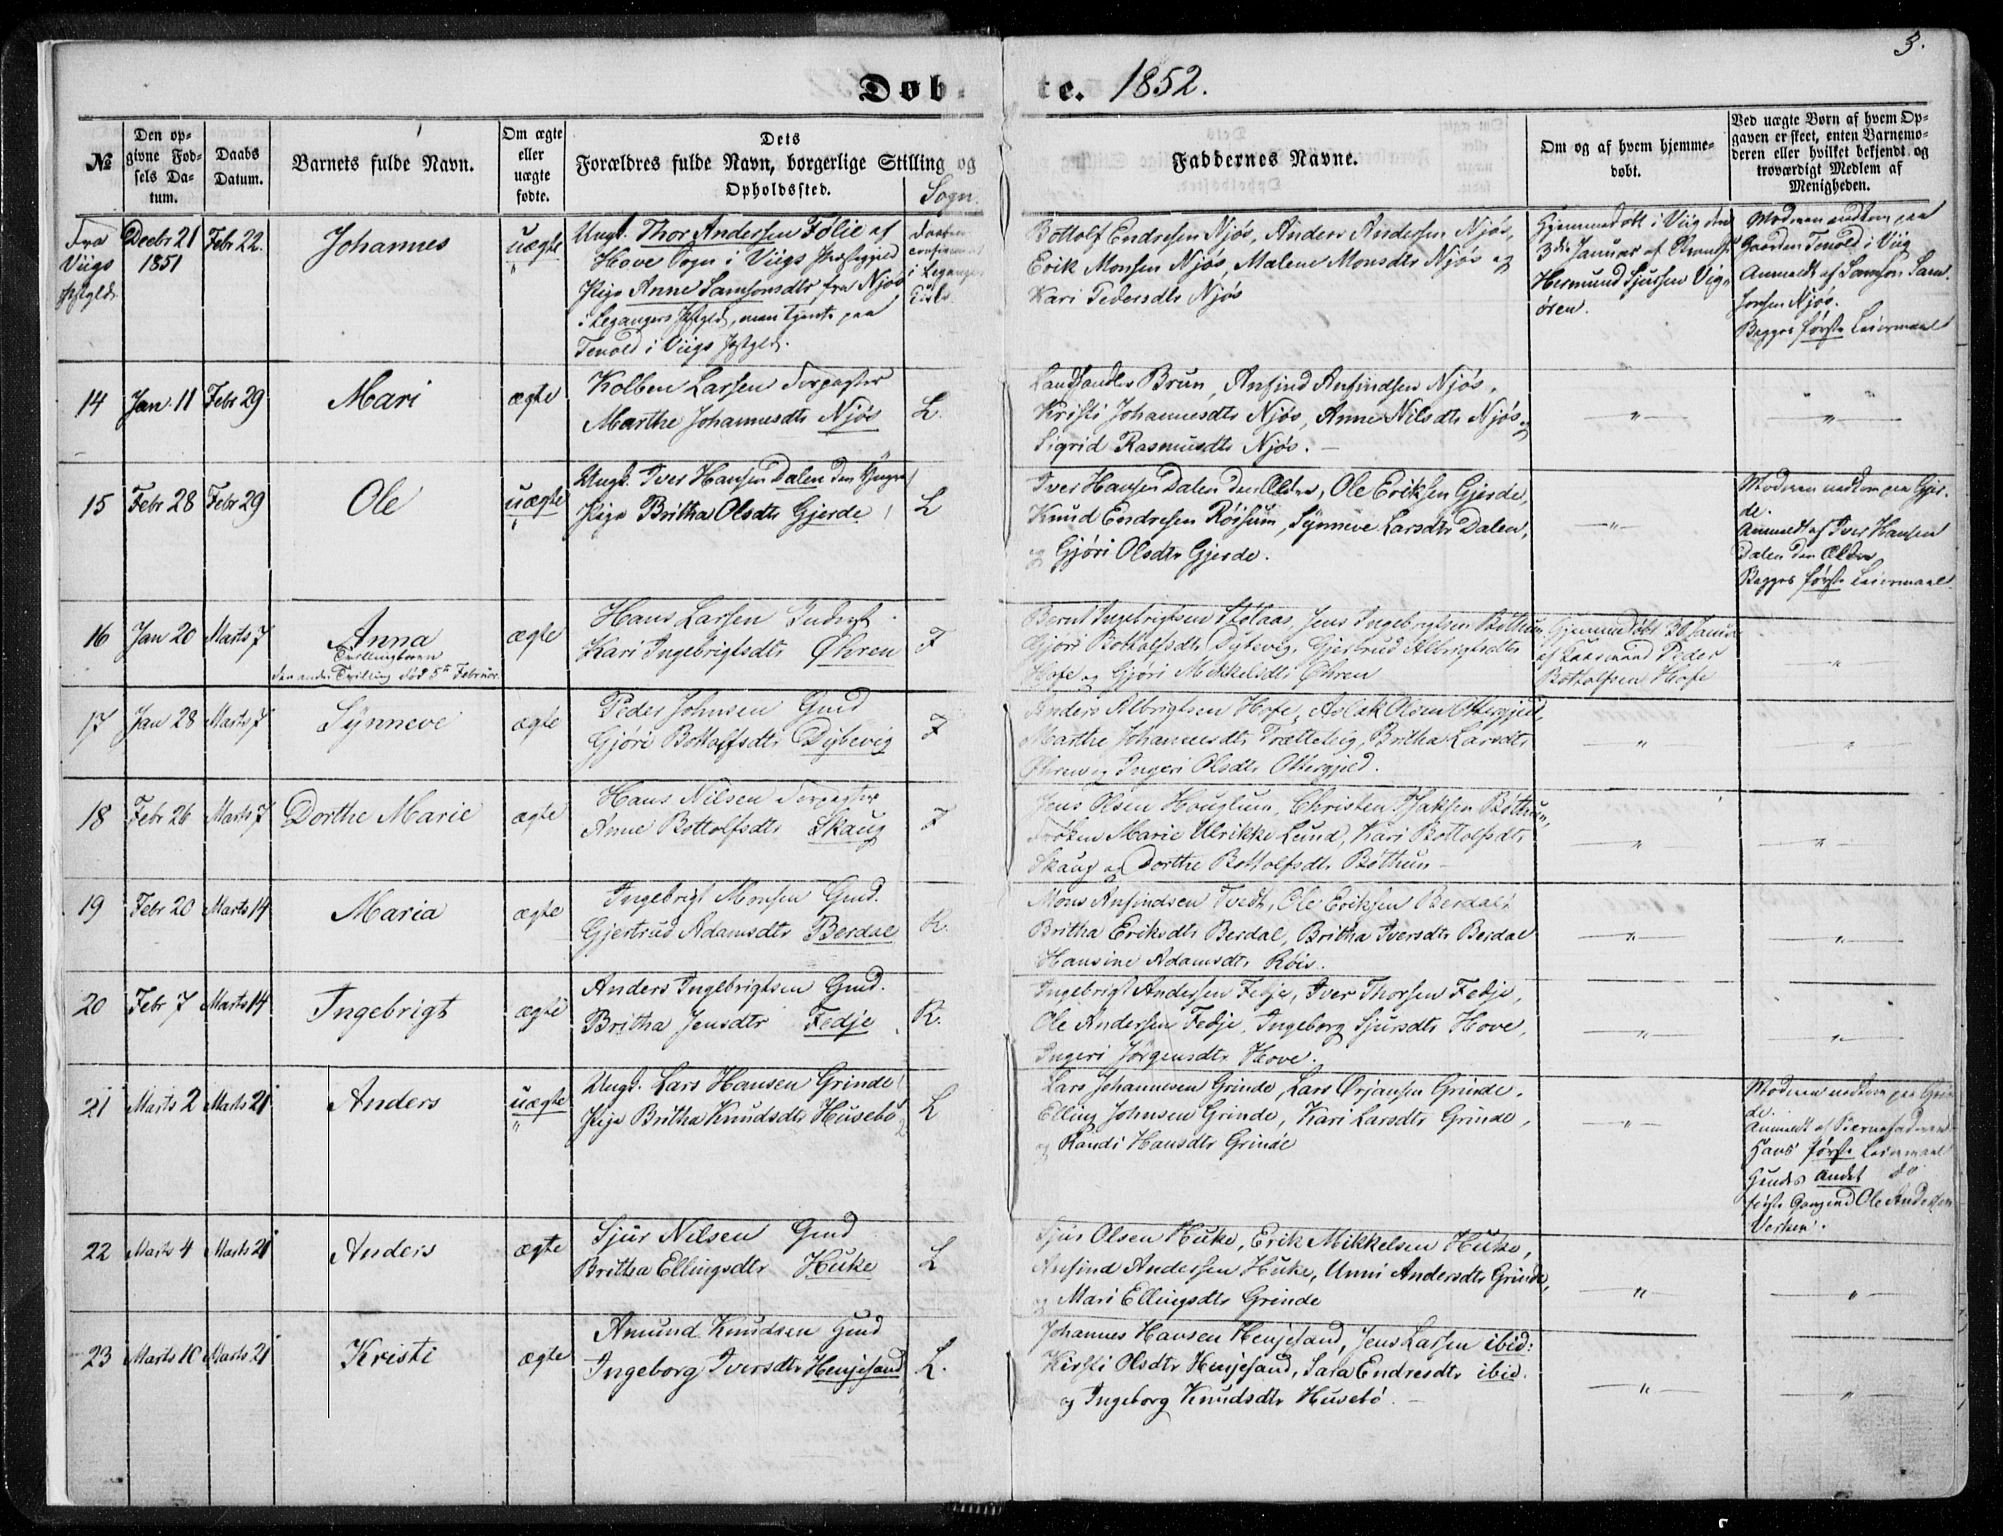 3.
Døbte. 1852.
№
Den opgivne Fødsels Datum.
Daabs Datum.
Barnets fulde Navn.
Om ægte eller uægte fødte.
Dets Forældres fulde Navn, borgerlige Stilling og Opholdssted.
Sogn.
Faddernes Navne.
Om og af hvem hjemmedøbt.
Ved uægte Børn af hvem Opgaven er skeet, enten Barnemoderen eller hvilket bekjendt og troværdigt Medlem af Menigheden.
Fra
Viigs
Decbr 21
1851
Febr 22.
Johannes
uægte
Ungk. Thor Andersen Følie af
Hove Sogn i Viigs
Pige Anne Samsonsdtr fra Njøs
i Legangers men tjente paa
Tenold i Viigs
i Leganger
Bottolf Endresen Njøs, Anders Andersen Njøs,
Erik Monsen Njøs, Malene Monsdtr Njøs og
Kari Pedersdtr Njøs
Hjemmedøbt i Viig den
3die Januar af
Hermund Sjursen Vig-
øren.
Moderen nedkom paa
Gaarden Tenold i Viig
Anmeldt af Samson Sam-
sonsen Njøs.
Begges første Leiermaal
14
Jan. 11
Febr 29
Mari
ægte
Kolben Larsen
Marthe Johannesdtr Njøs
L.
Landhandler Brun, Ansind Ansindsen Njøs,
Kristi Johannesdtr Njøs, Anne Nilsdtr Njøs og
Sigrid Rasmusdtr Njøs.
—"—
—"—
15
Febr 28
Febr 29
Ole
uægte
Ungk. Iver Hansen Dalen den Yngre
Pige Britha Olsdtr Gjerde
L
Iver Hansen Dalen den Ældre, Ole Eriksen Gjerde,
Knud Endresen Røisum, Synneve Larsdtr Dalen,
og Gjøri Olsdtr Gjerde.
—"—
Moderen nedkom paa Gjer-
de.
Anmeldt af Iver Hansen
Dalen den Ældre
Begges første Leiermaal
16
Jan 20
Marts 7
Anna
Tvillingbarn
den anden Tvilling død 5te Februar.
ægte
Hans Larsen
Kari Ingebrigtsdtr Øhren
F
Bernt Ingebrigtsen Stølaas, Jens Ingebrigtsen Bøthun
Gjøri Bottolfsdtr Dybevig, Gjertrud Albrigtsdtr
Hofe og Gjøri Mikkelsdtr Øhren
Hjemmedøbt 30 Januar
af Peder
Bottolfsen Hofe
"
17
Jan 28
Marts 7
Synneve
ægte
Peder Johnsen Gmd
Gjøri Bottolfsdtr Dybevig
F
Anders Albrigtsen Hofe, Aslak Olsen Ottergjeld,
Marthe Johannesdtr Trætteteig, Britha Larsdtr
Øhren og Ingeri Olsdtr Ottergjeld.
—"—
"
18
Febr 26
Marts 7
Dorthe Marie
ægte
Hans Nilsen
Anne Bottolfsdtr Skaug
F
Jens Olsen Houglum, Christen Isaksen Bøthun,
Frøken Marie Ulrikke Lund, Kari Bottolfsdtr
Skaug og Dorthe Bottolfsdtr Bøthun
—"—
—"—
19
Febr 20
Marts 14
Maria
ægte
Ingebrigt Monsen Gmd.
Gjertrud Adamsdtr Berdal
R.
Mons Ansindsen Tvedt, Ole Eriksen Berdal,
Britha Eriksdtr Berdal, Britha Iversdtr Berdal
Hansine Adamsdtr Røis.
—"—
—"—
20
Febr 7
Marts 14
Ingebrigt
ægte
Anders Ingebrigtsen Gmd.
Britha Jensdtr Fedje
R.
Ingebrigt Andersen Fedje, Iver Thorsen Fedje,
Ole Andersen Fedje, Ingeborg Sjursdtr Hove,
Ingeri Jørgensdtr Hove.
—"—
—"—
21
Marts 2
Marts 21
Anders
uægte
Ungk. Lars Hansen Grinde
Pige Britha Knudsdtr Husebø
L
Lars Johannesen Grinde, Lars Ørjansen Grinde,
Elling Johnsen Grinde, Kari Larsdtr Grinde,
og Randi Hansdtr Grinde
—"—
Moderen nedkom paa Grin-
de.
Anmeldt af Barnefaderen
Hans første Leiermaal
Hendes andet do
første Gang med Ole Andersen
22
Marts 4
Marts 21
Anders
ægte
Sjur Nilsen Gmd
Britha Ellingsdtr Huke
L
Sjur Olsen Huke, Erik Mikkelsen Huke,
Ansind Andersen Huke, Unni Andersdtr Grinde,
og Mari Ellingsdtr Grinde
"
"
23
Marts 10
Marts 21
Kristi
ægte
Amund Knudsen Gmd
Ingeborg Iversdtr Henjesand
L.
Johannes Hansen Henjesand, Jens Larsen ibid:
Kirsti Olsdtr Henjesand, Sara Endresdtr ibid.
og Ingeborg Knudsdtr Husebø.
—"—
"